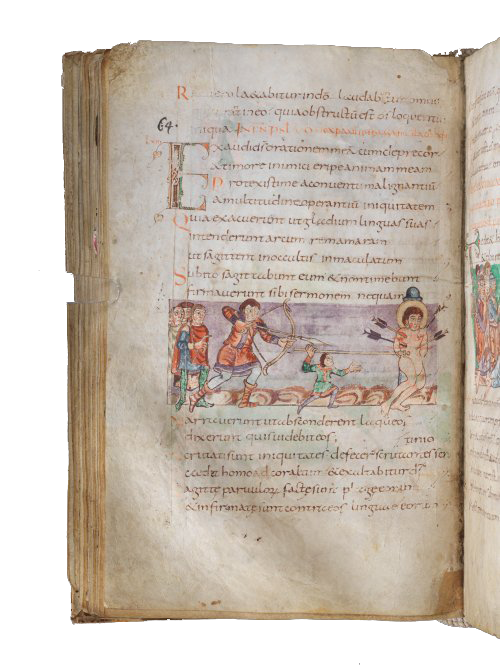 Rex uero laetabitur in dō laudabuntur omnes
in eo quia obstructū est os loquentiū
64.
iniqua
Exaudi dš orationem meā cum deprecor
a timore inimici eripe animam meam
Protexisti me a conuentu malignantiū
a multitudine operantiū iniquitatem
Quia exacuerunt ut gladium linguas suas
intenderunt arcum rem amaram
ut sagittent in occultis inmaculatum
Subito sagittabunt eum & non timebunt
firmauerunt sibi sermonem nequam
Narrauerunt ut absconderent laqueos
dixerunt quis uidebit eos,
tinio
Scrutati sunt iniquitates defecer scrutantes scru
Accedet homo ad cor altum & exaltabitur dš
Sagitte paruulorū facte sunt plage eorum
& infirmate sunt contra eos lingue eorum